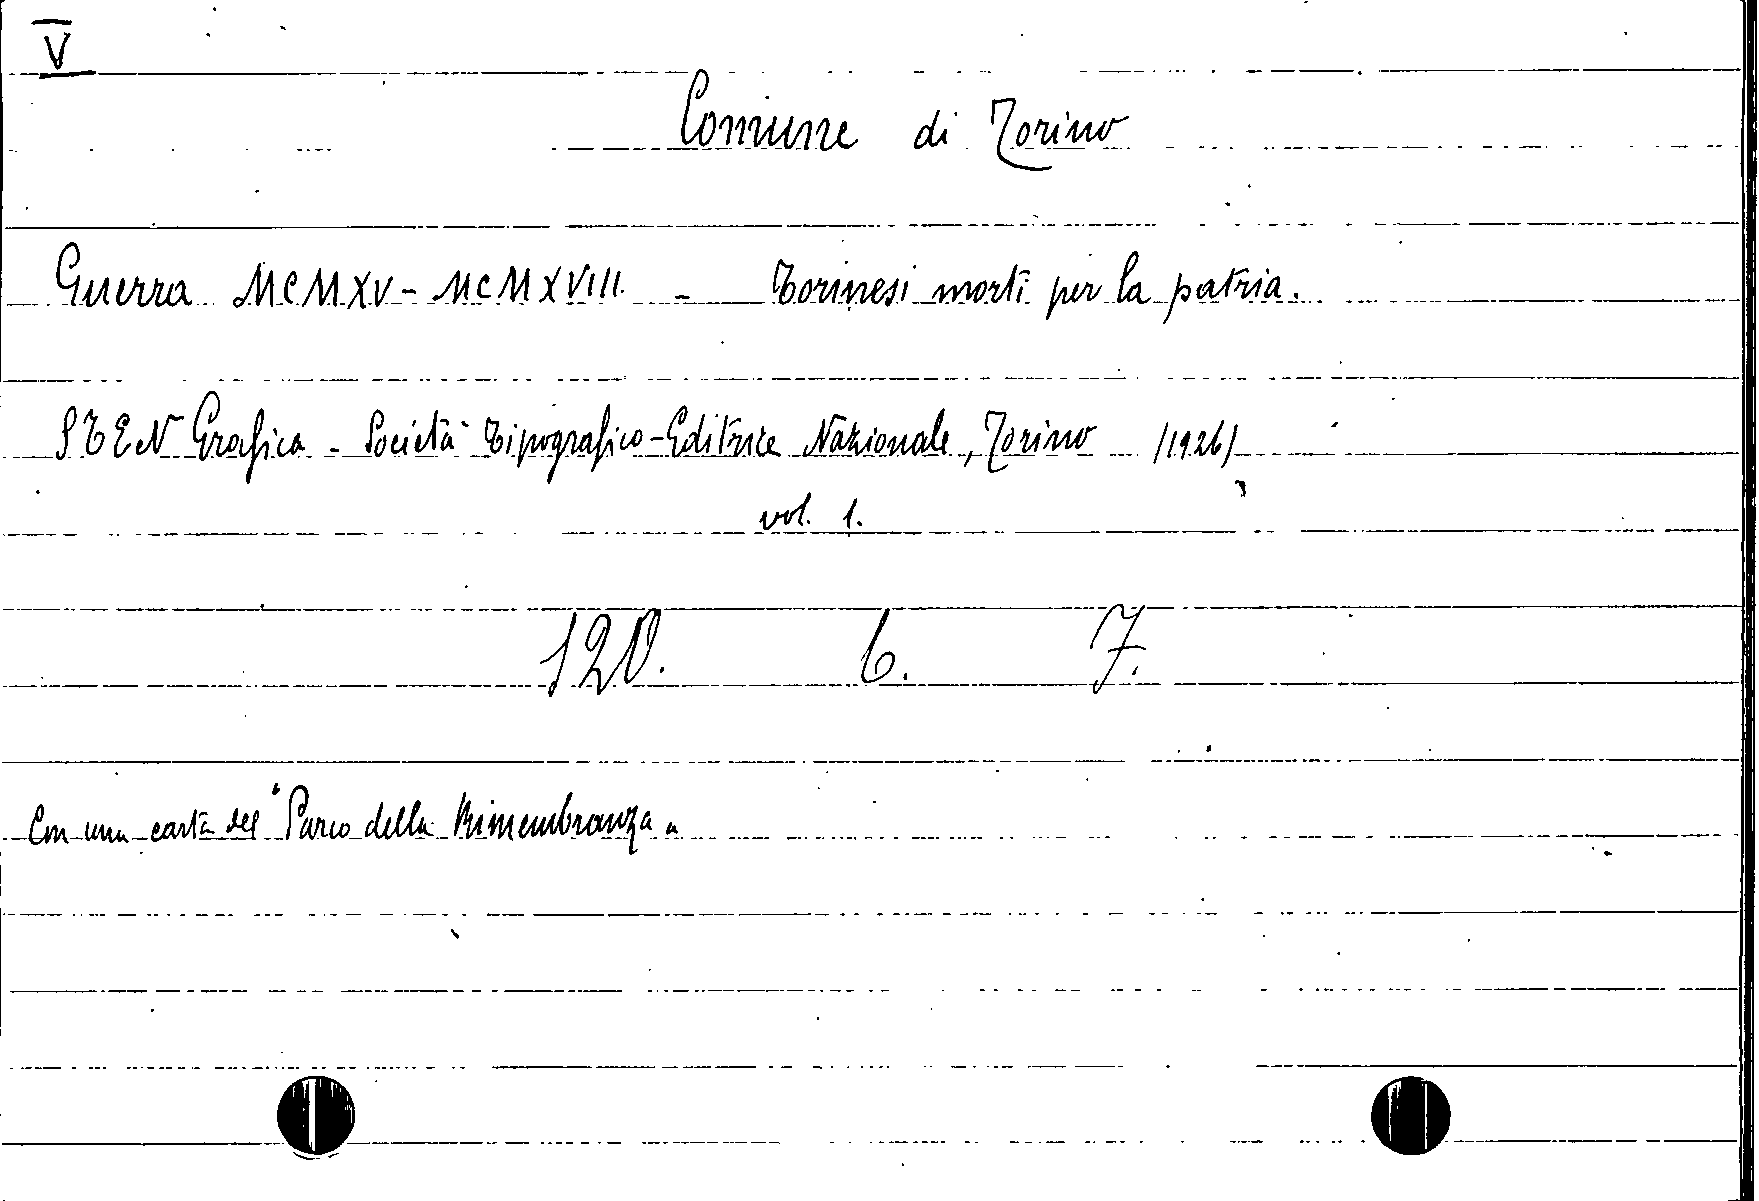 V
Comune di Torino
Guerra MCMXV - MCMXVIII. - Torinesi morti per la patria.
STEN Grafica - Società Tipografico-Editrice Nazionale, Torino (1926)
vol. 1.
120. 6. 7.
Con una carta del "Parco della Rimembranza"